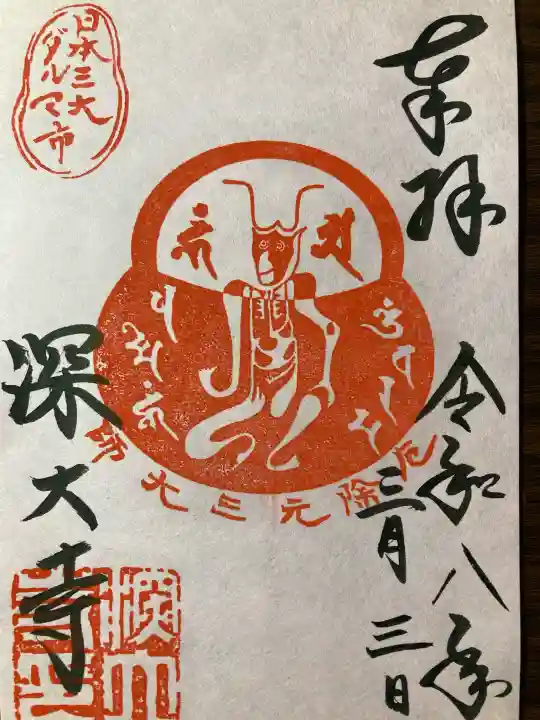 奉拝
令和八年
三月三日
日本三大
ダルマ市
厄除元三大師
深大寺